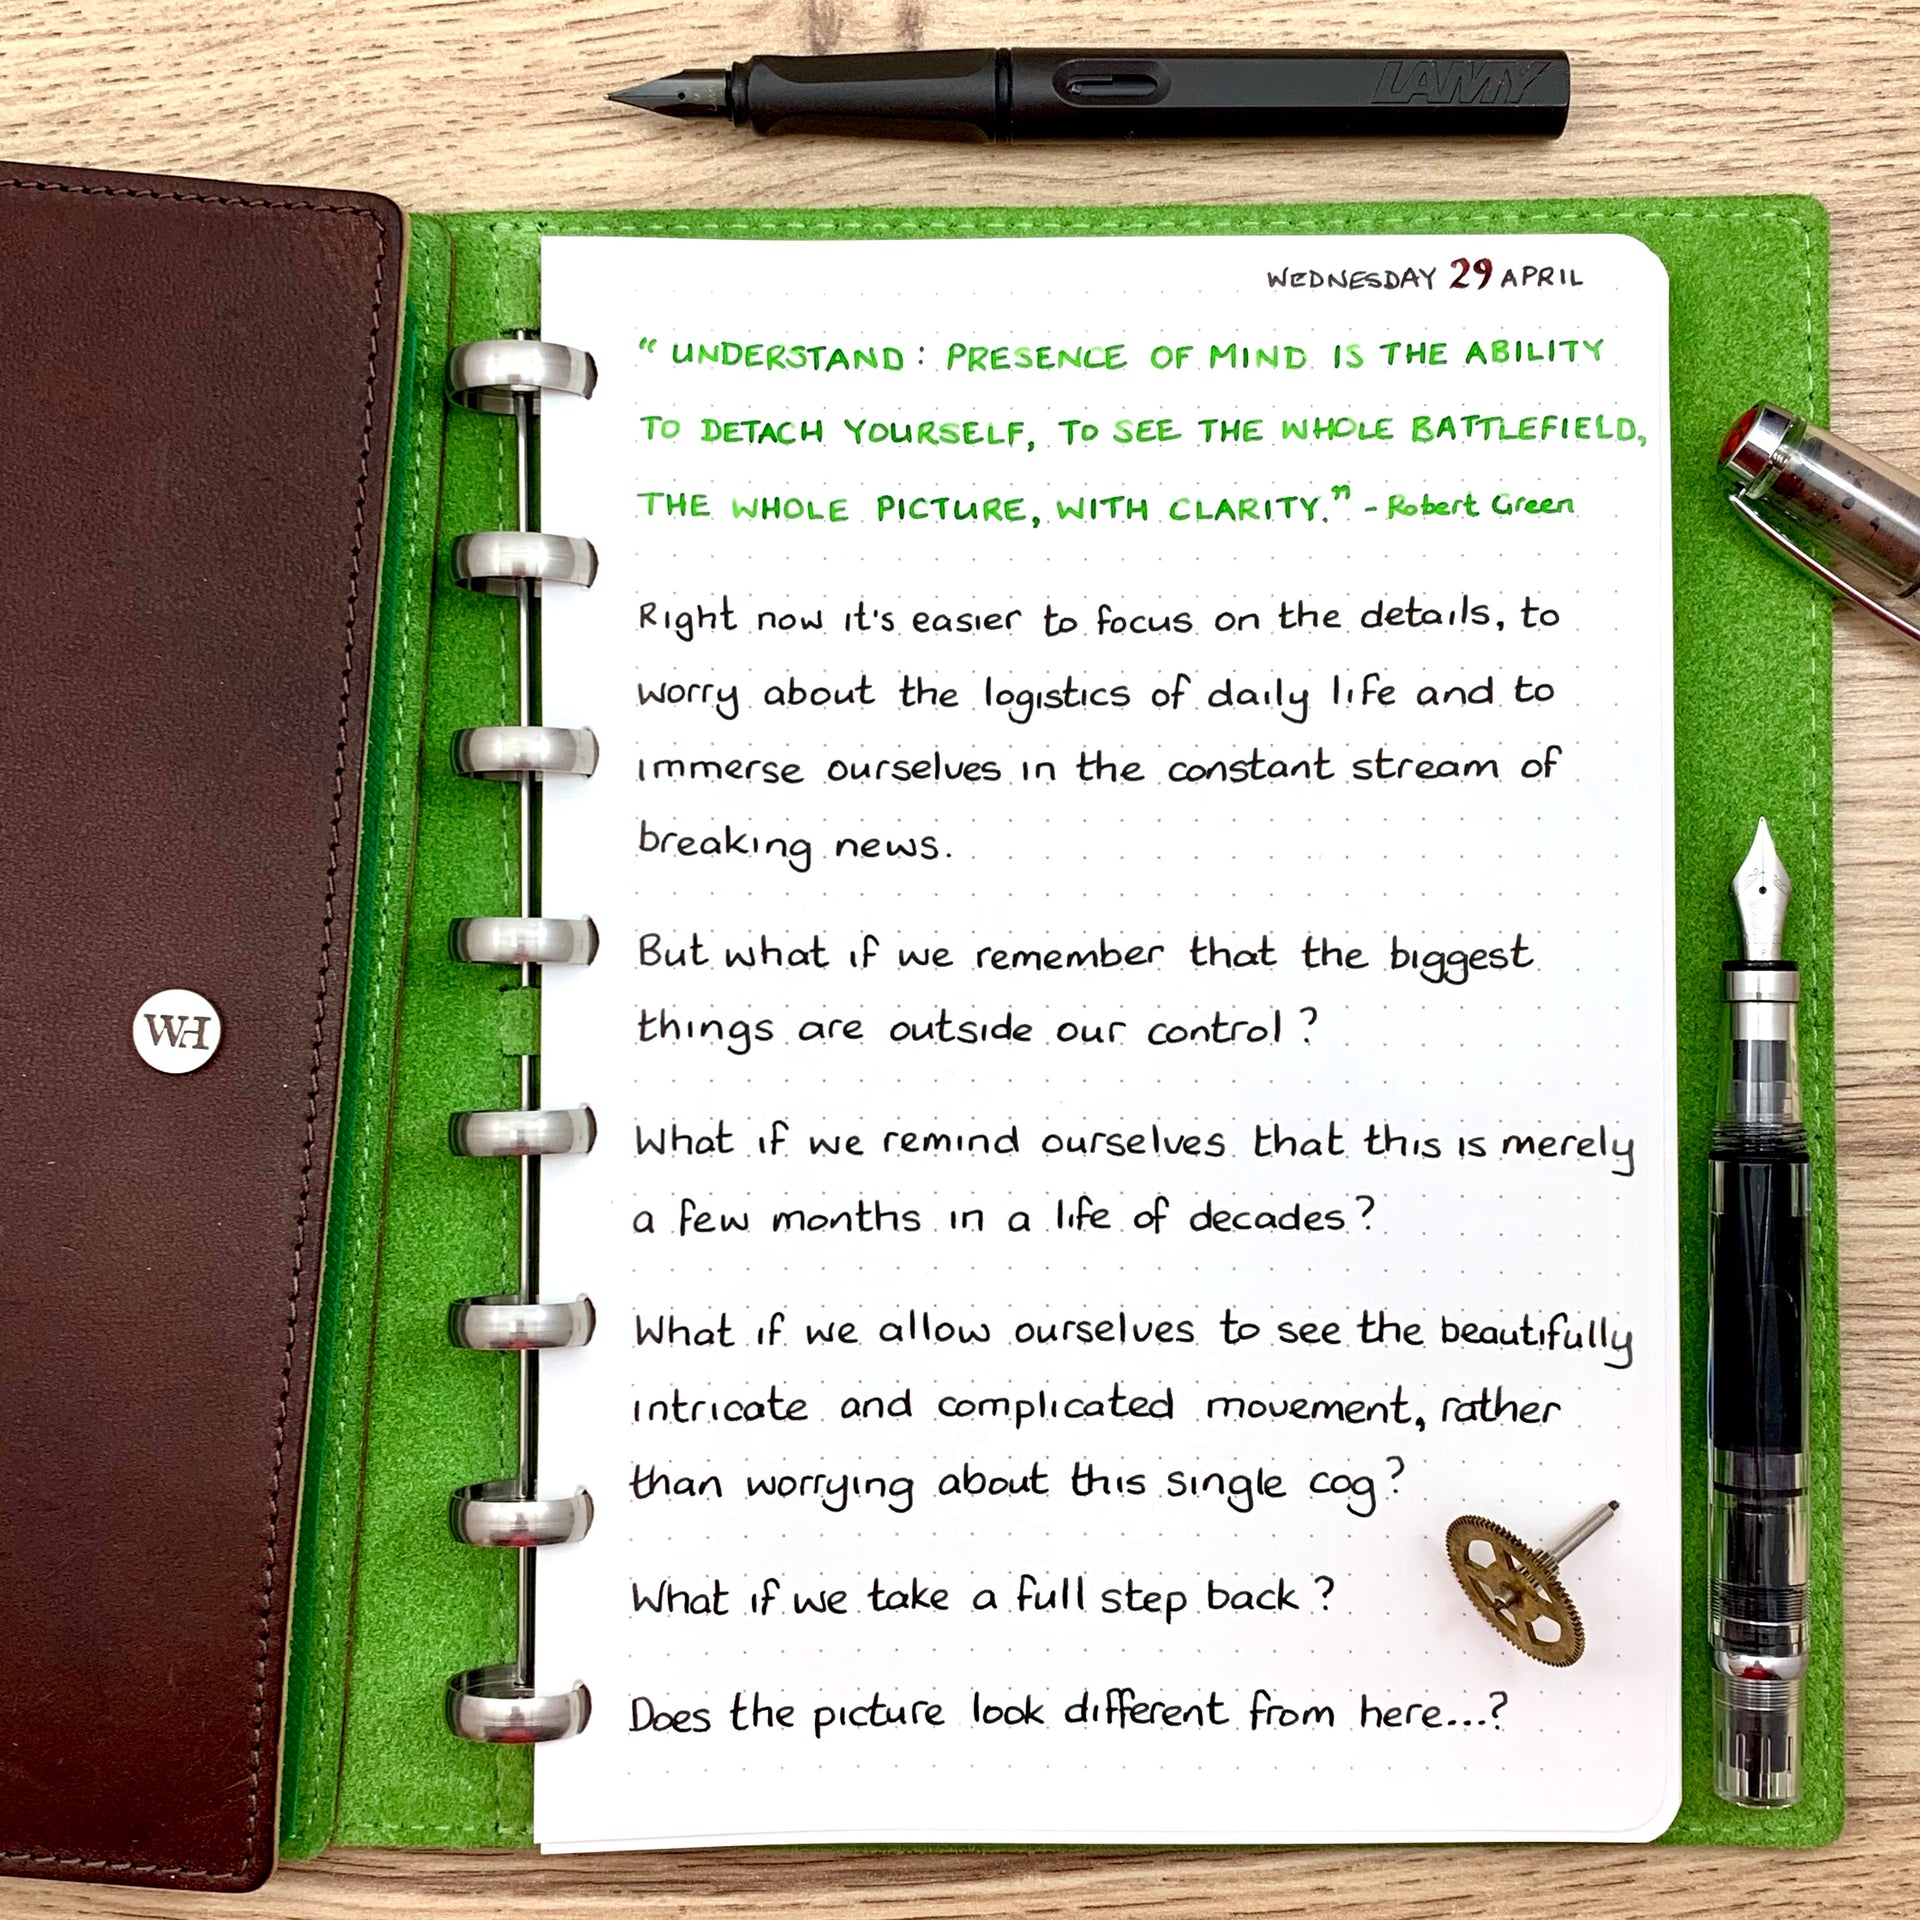 LAMY
WEDNESDAY 29 APRIL
“UNDERSTAND: PRESENCE OF MIND IS THE ABILITY
TO DETACH YOURSELF, TO SEE THE WHOLE BATTLEFIELD,
THE WHOLE PICTURE, WITH CLARITY.” - Robert Green
Right now it's easier to focus on the details, to
worry about the logistics of daily life and to
immerse ourselves in the constant stream of
breaking news.
But what if we remember that the biggest
things are outside our control?
What if we remind ourselves that this is merely
a few months in a life of decades?
What if we allow ourselves to see the beautifully
intricate and complicated movement, rather
than worrying about this single cog?
What if we take a full step back?
Does the picture look different from here...?
WH